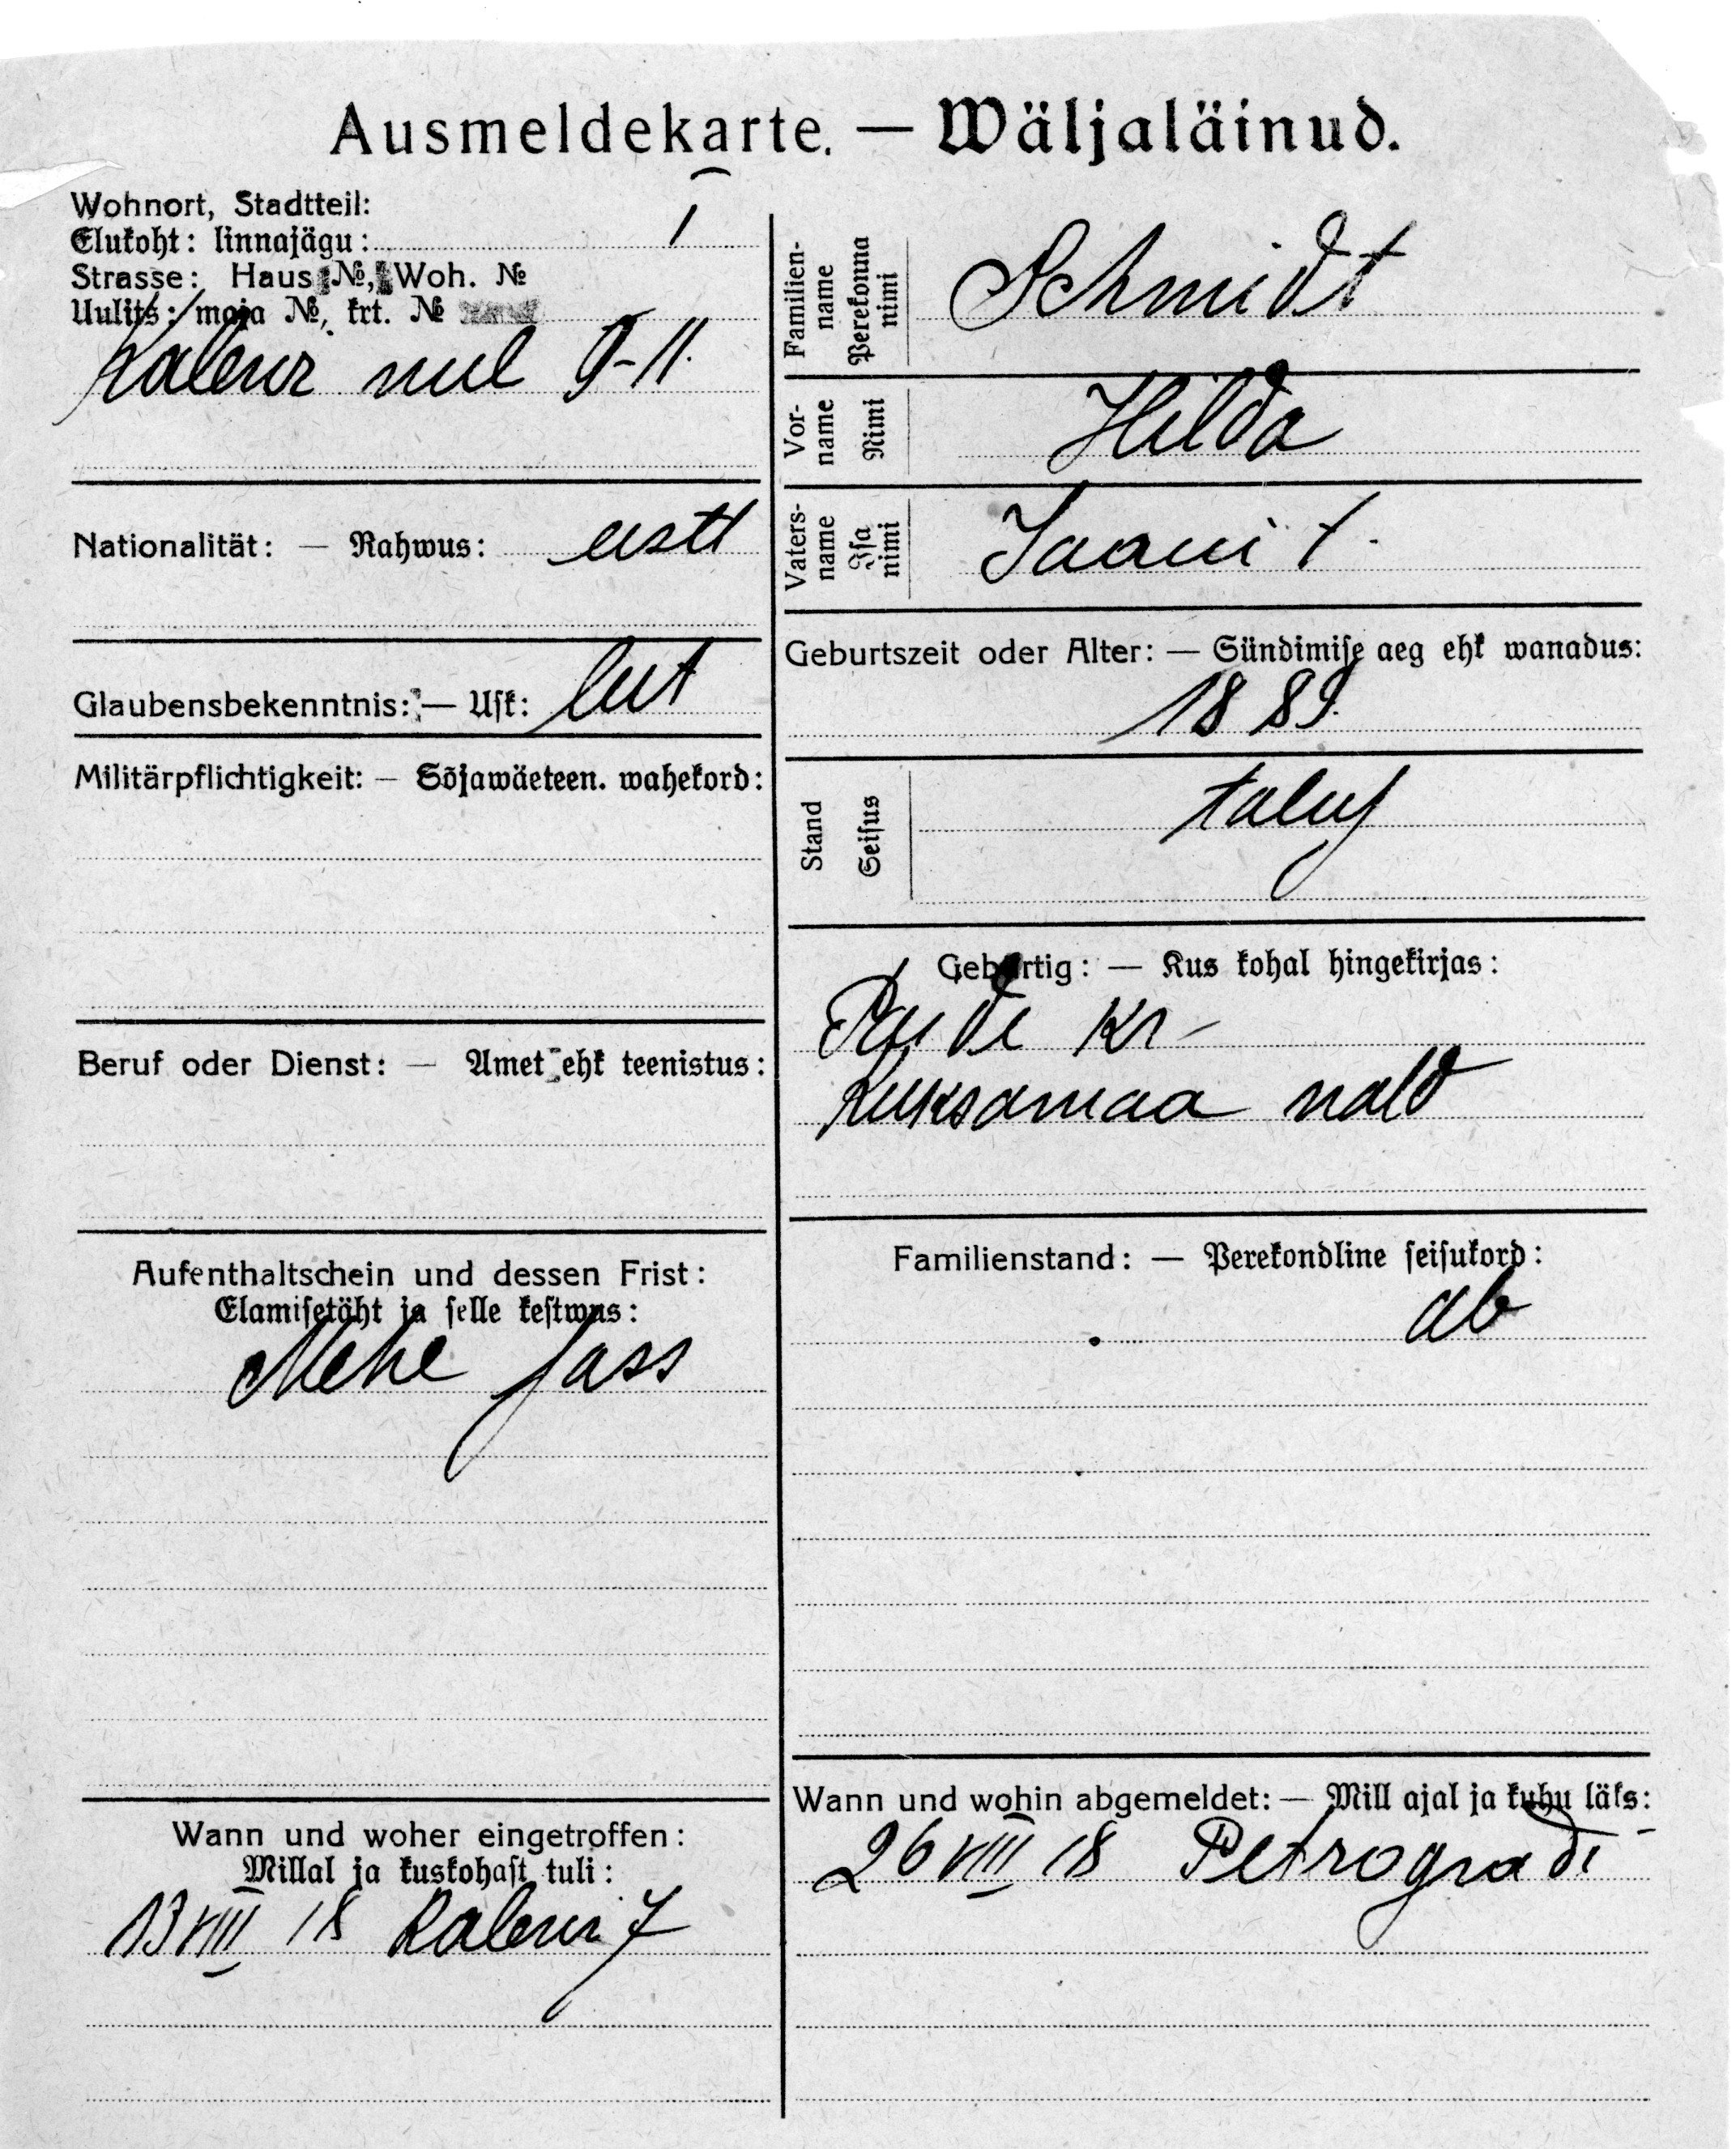 Ausmeldekarte. — Wäljaläinud.
Wohnort, Stadtteil:
Elukoht: linnajägu: 1
Strasse: Haus №, Woh. №
Uulits: maja №, krt. №
9-11.
Nationalität: — Rahwus: eestl
Glaubensbekenntnis: — Usk: lut
Militärpflichtigkeit: — Sõjawäeteen. wahekord:
Beruf oder Dienst: — Amet ehk teenistus:
Aufenthaltschein und dessen Frist:
Elamisetäht ja selle kestwus:
Mehe pass
Wann und woher eingetroffen:
Millal ja kuskohast tuli:
13 VIII 18 Kalevi 7
Familien-
name
Perekonna
nimi
Schmidt
Vor-
name
Nimi
Hilda
Vaters-
name
Isa
nimi
Jaani t.
Geburtszeit oder Alter: — Sündimise aeg ehk wanadus:
1889.
Stand
Seisus
talup
Gebürtig: — Kus kohal hingekirjas:
Paide kr-
Kuksamaa vald
Familienstand: — Perekondline seisukord:
ab
Wann und wohin abgemeldet: — Mill ajal ja kuhu läks:
26 VIII 18 Petrogradi